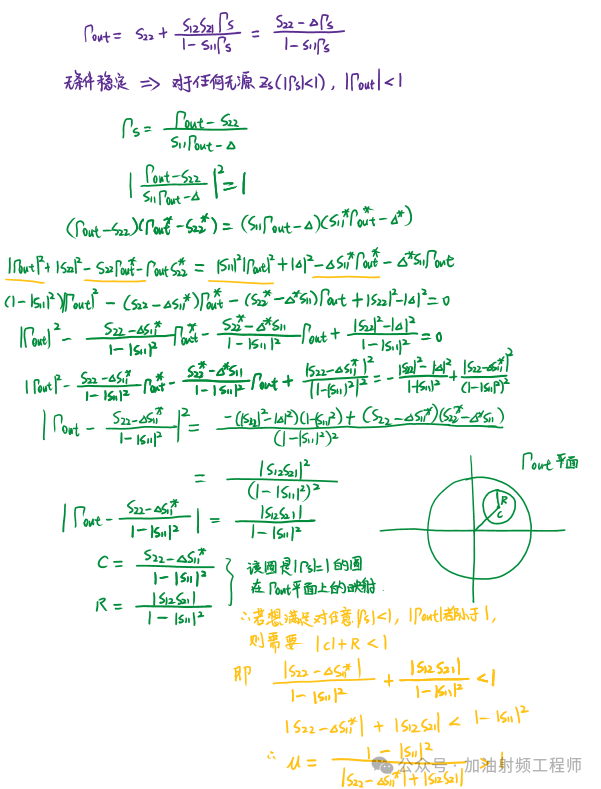 Γout = S22 + S12S21Γs / 1 - S11Γs = S22 - ΔΓs / 1 - S11Γs
无条件稳定 => 对于任何无源Zs(|Γs|<1), |Γout|<1
Γs = Γout - S22 / S11Γout - Δ
| Γout - S22 / S11Γout - Δ |² = 1
(Γout - S22)(Γout* - S22*) = (S11Γout - Δ)(S11*Γout* - Δ*)
|Γout|² + |S22|² - S22Γout* - ΓoutS22* = |S11|²|Γout|² + |Δ|² - ΔS11*Γout* - Δ*S11Γout
(1 - |S11|²)|Γout|² - (S22 - ΔS11*)Γout* - (S22* - Δ*S11)Γout + |S22|² - |Δ|² = 0
|Γout|² - S22 - ΔS11* / 1 - |S11|² Γout* - S22* - Δ*S11 / 1 - |S11|² Γout + |S22|² - |Δ|² / 1 - |S11|² = 0
|Γout|² - S22 - ΔS11* / 1 - |S11|² Γout* - S22* - Δ*S11 / 1 - |S11|² Γout + |S22 - ΔS11*|² / (1 - |S11|²)² = - |S22|² - |Δ|² / 1 - |S11|² + |S22 - ΔS11*|² / (1 - |S11|²)²
| Γout - S22 - ΔS11* / 1 - |S11|² |² = -(|S22|² - |Δ|²)(1 - |S11|²) + (S22 - ΔS11*)(S22* - Δ*S11) / (1 - |S11|²)²
= |S12S21|² / (1 - |S11|²)²
Γout平面
R
C
| Γout - S22 - ΔS11* / 1 - |S11|² | = |S12S21| / 1 - |S11|²
C = S22 - ΔS11* / 1 - |S11|²
R = |S12S21| / 1 - |S11|²
该圆是|Γs|=1的圆
在Γout平面上的映射.
∴若想满足对任意|Γs|<1, |Γout|都小于1,
则需要 |C| + R < 1
即 |S22 - ΔS11*| / 1 - |S11|² + |S12S21| / 1 - |S11|² < 1
|S22 - ΔS11*| + |S12S21| < 1 - |S11|²
∴ u = 1 - |S11|² / |S22 - ΔS11*| + |S12S21| > 1
公众号 · 加油射频工程师